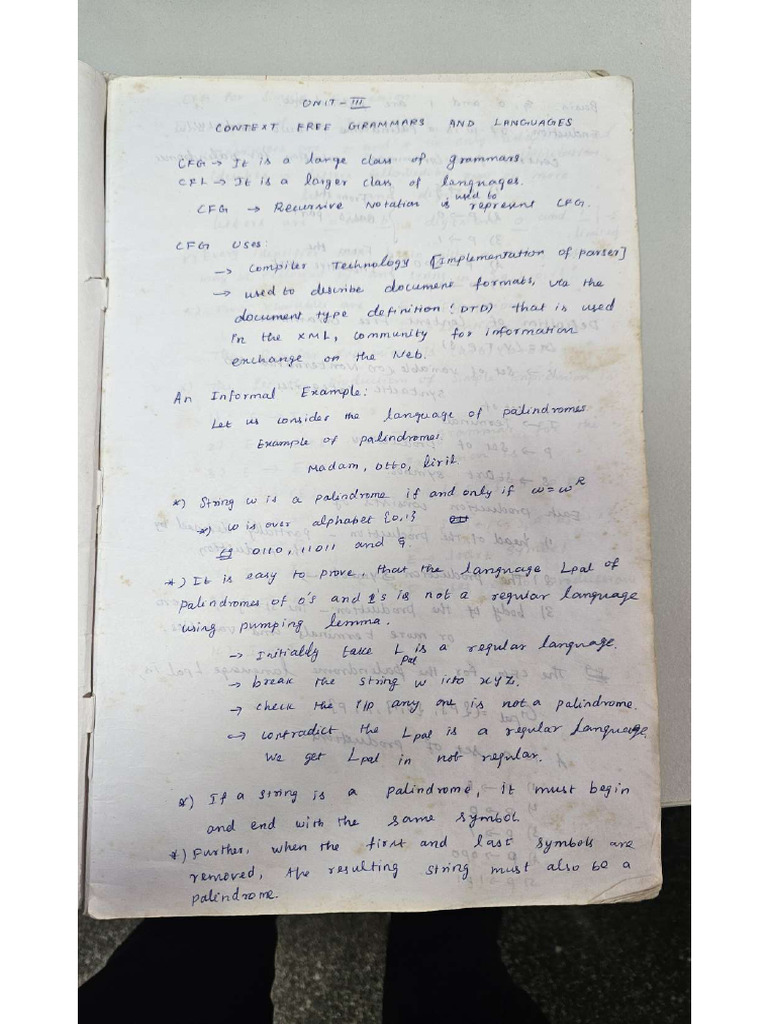 UNIT - III
CONTEXT FREE GRAMMARS AND LANGUAGES
CFG → It is a large class of grammars.
CFL → It is a larger class of languages.
CFG → Recursive Notation is used to represent CFG.
CFG Uses:
→ Compiler Technology [Implementation of parser]
→ used to describe document formats, via the
document type definition (DTD) that is used
in the XML, community for information
exchange on the Web.
An Informal Example:
Let us consider the language of palindromes
Example of palindromes.
Madam, otto, liril.
*) String w is a palindrome if and only if w = wᴿ
*) w is over alphabet {0,1}
Eg 0110, 11011 and ε.
*) It is easy to prove, that the language Lpal of
palindromes of 0's and 1's is not a regular language
using pumping lemma.
→ Initially take Lpal is a regular language.
→ break the string w into xyz.
→ check the I/P any one is not a palindrome.
→ contradict the Lpal is a regular language.
We get Lpal in not regular.
*) If a string is a palindrome, it must begin
and end with the same symbol.
*) Further, when the first and last symbols are
removed, the resulting string must also be a
palindrome.